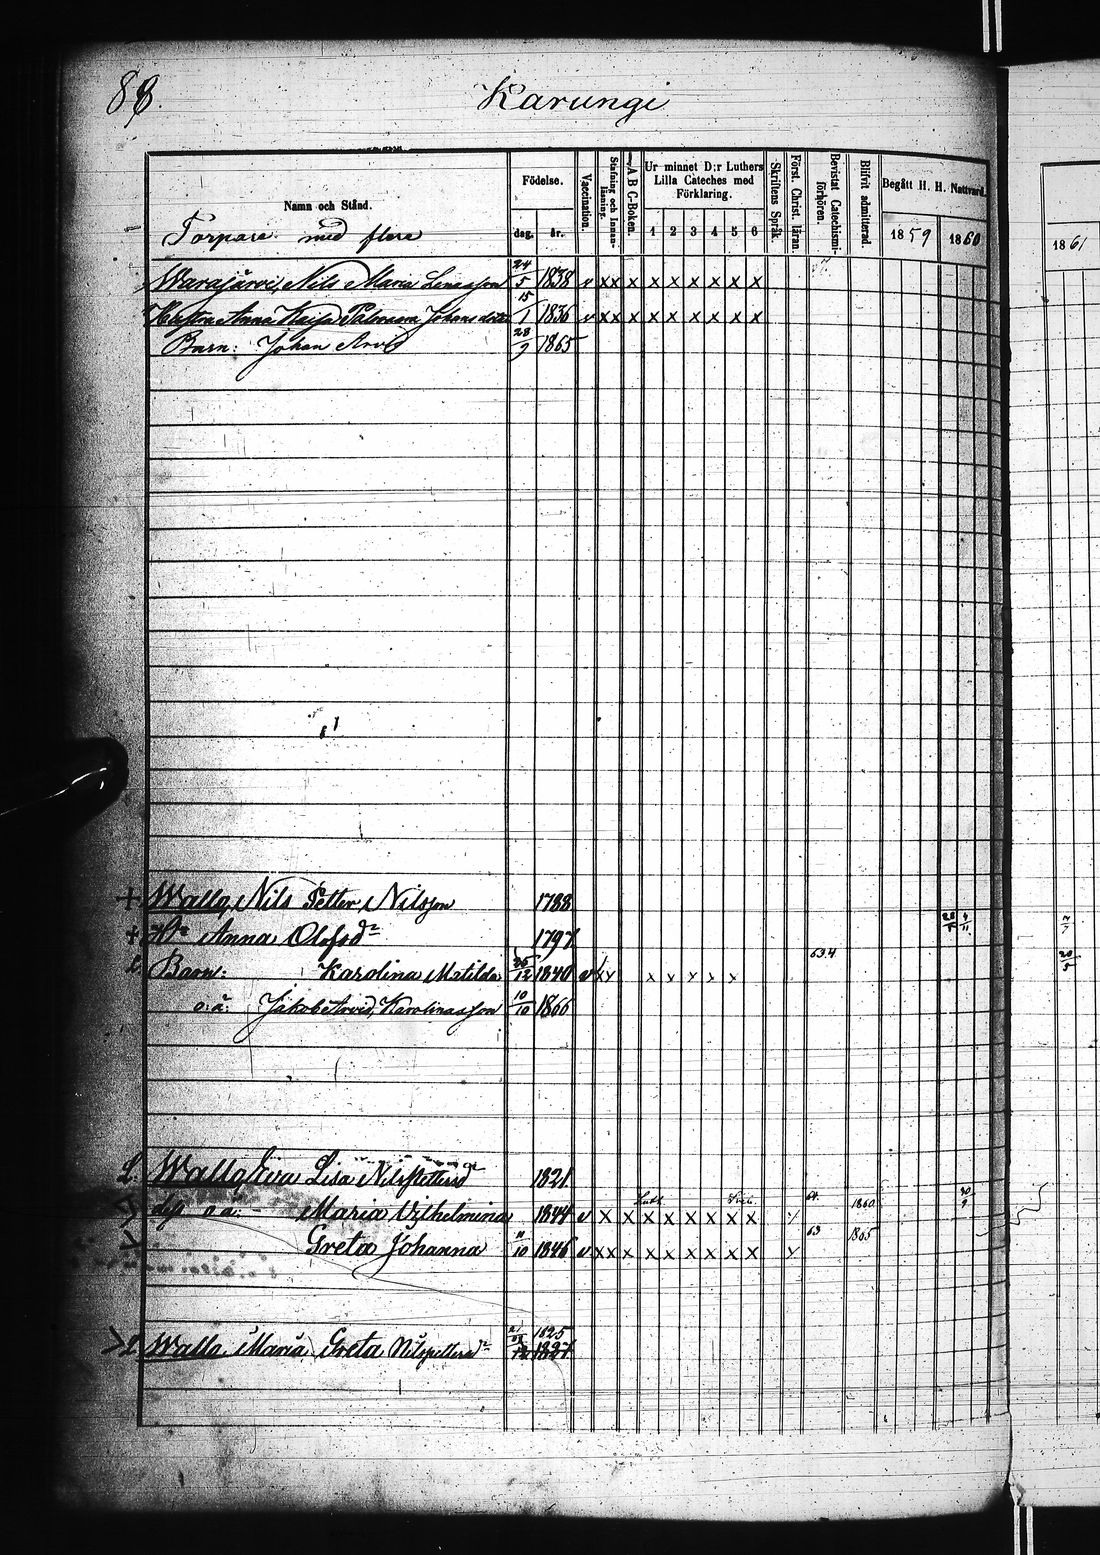 88.
Karungi
Namn och Stånd.
Födelse.
dag. år.
Vaccination.
Stafning och Innanläsning.
A B C-Boken.
Ur minnet D:r Luthers Lilla Cateches med Förklaring.
1 2 3 4 5 6
Skriftens Språk.
Först. Christ. läran.
Bevistat Catechismiförhören.
Blifvit admitterad.
Begått H. H. Nattvard.
1859 1860 1861
Torpare med flera
Warajärvi, Nils Maria Lenasson 24/5 1838 v x x x x x x x x x
Hustru Anna Kaisa Johansdotter 15/1 1836 v x x x x x x x x x
Barn: Johan Arvid 28/9 1865
+ Wallo, Nils Petter Nilsson 1788
+ H:u Anna Olofsdr 1797
Barn: Karolina Matilda 26/12 1840 v x x x x x x x 634
o.ä: Jakob Arvid, Karolinasson 10/10 1866
L. Wallo Eva Lisa Nilspettersdr 1821
dess o.ä: - Maria Vilhelmina 1844 v x x x x x x x x 64 1860
Greta Johanna 11/10 1846 v x x x x x x x x x 63 1865
Wallo Maria Greta Nilspettersdr 1825 1827